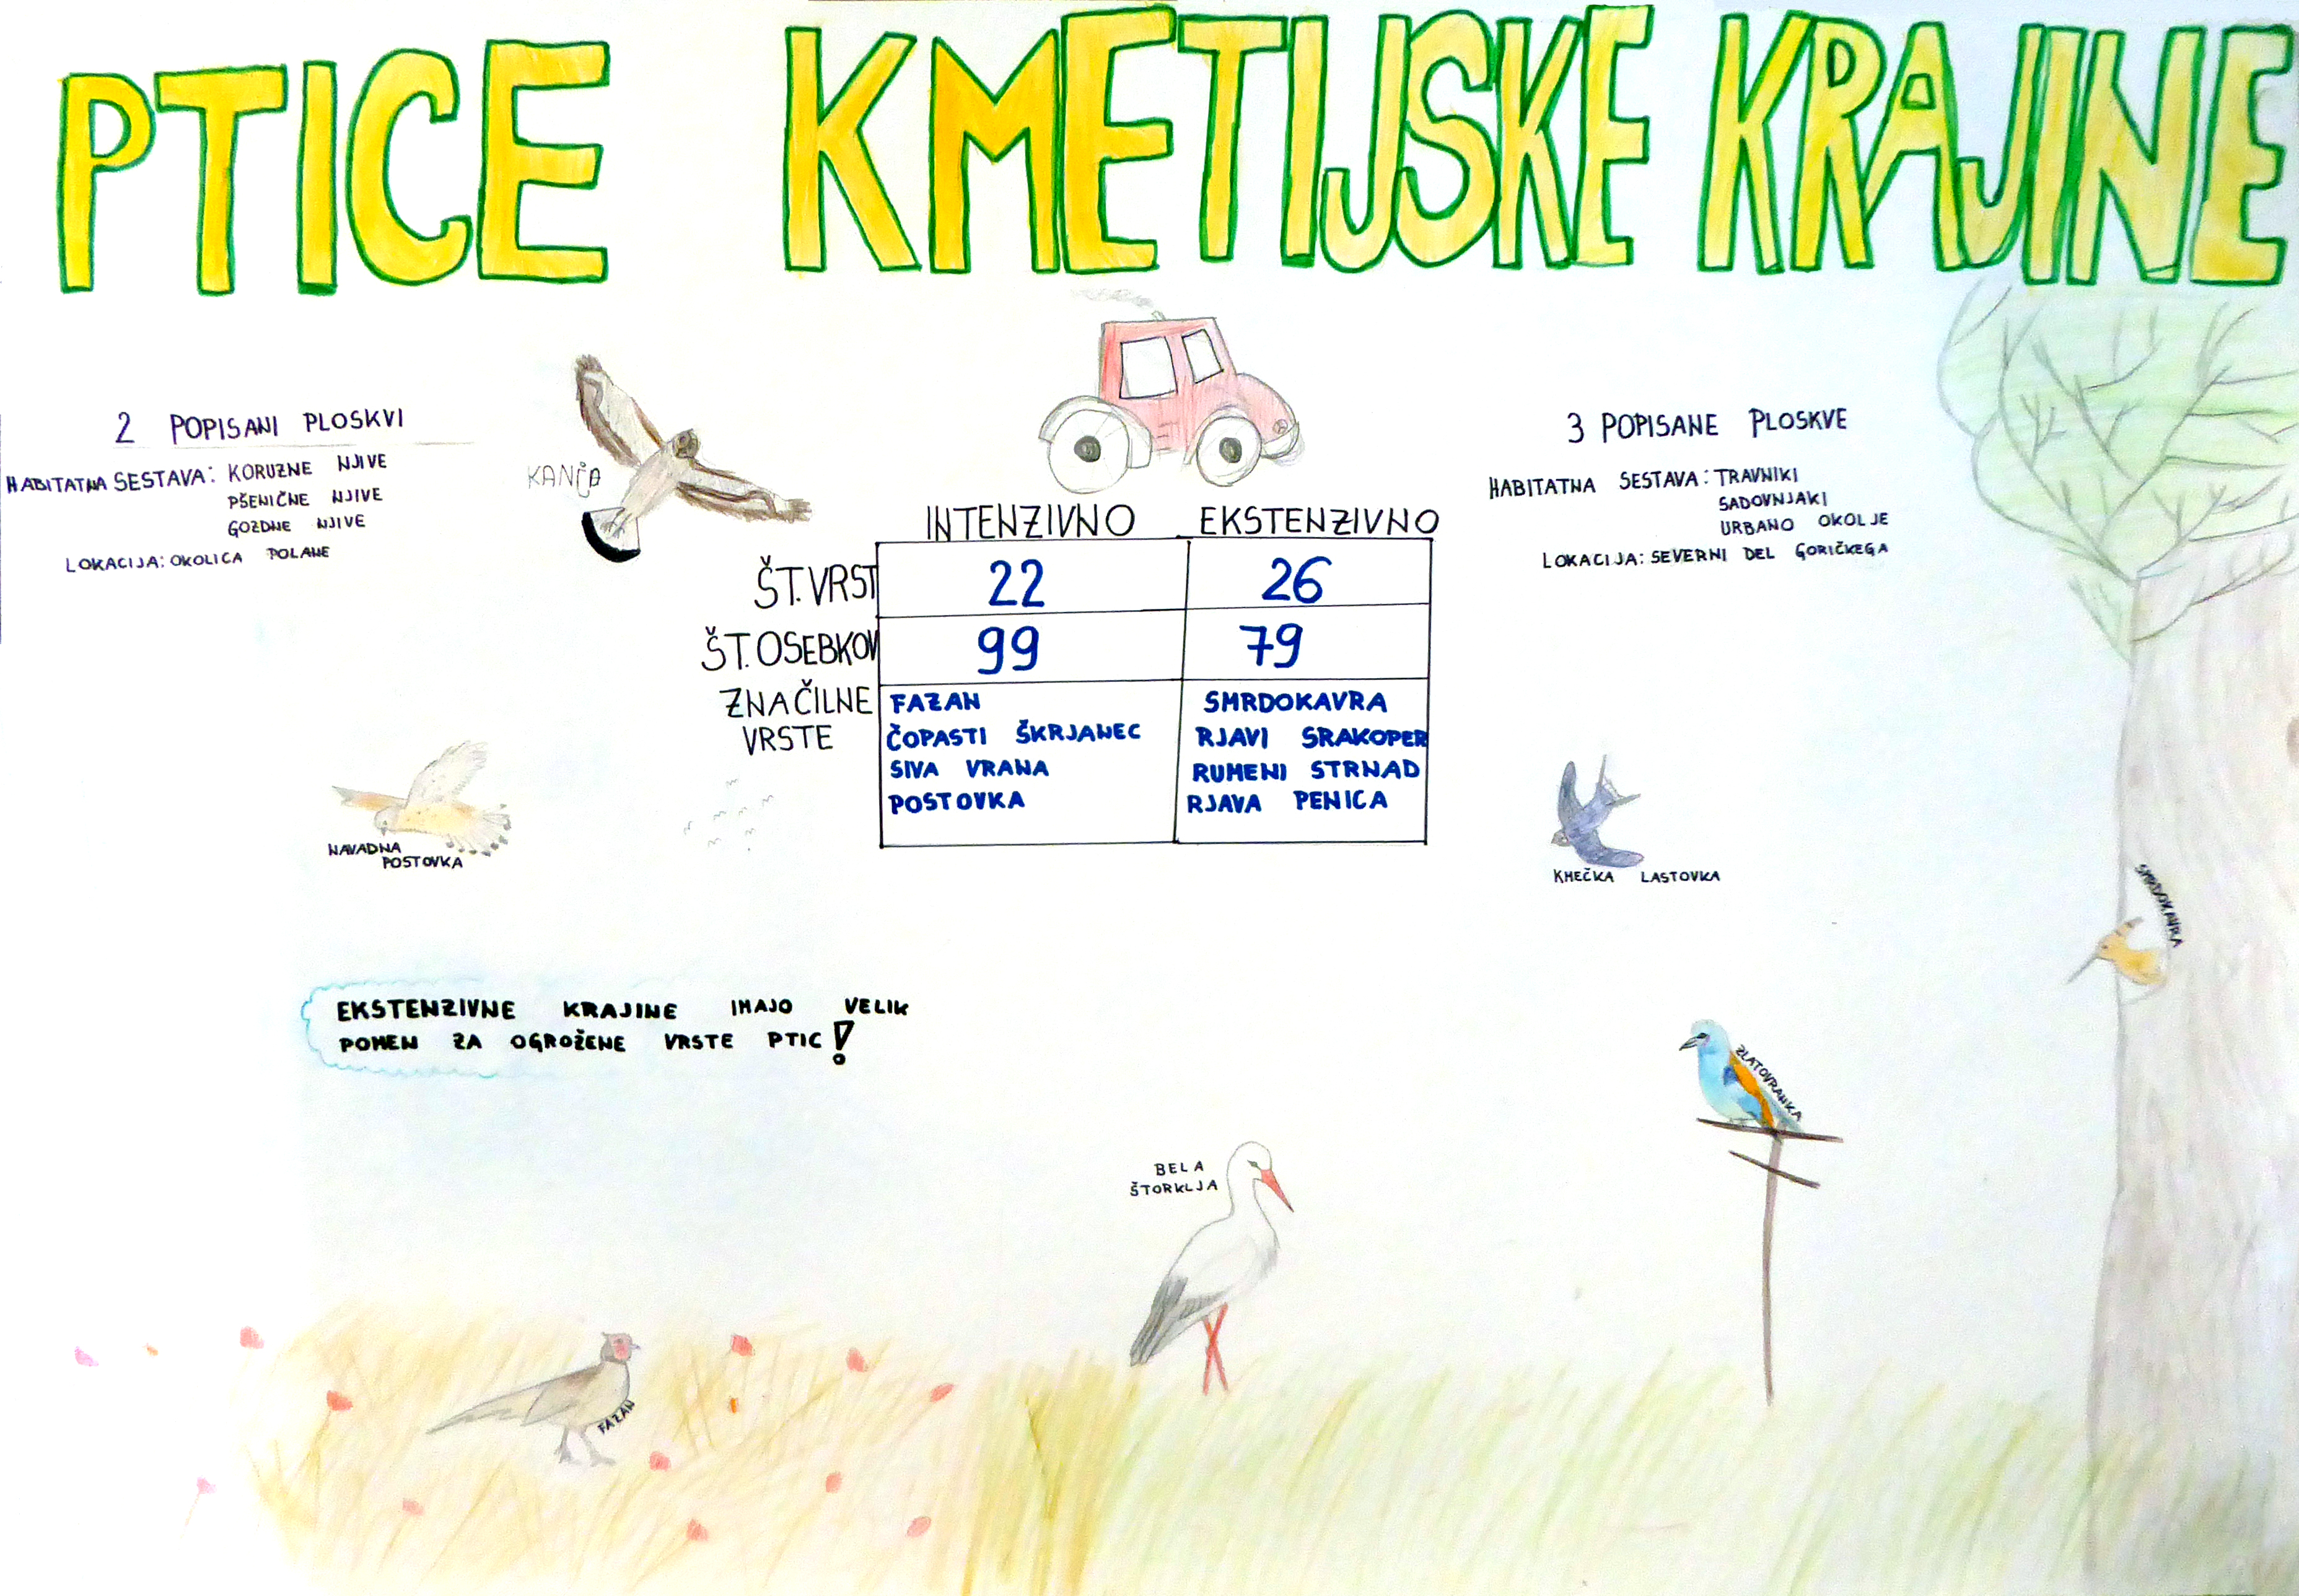 PTICE KMETIJSKE KRAJINE
2 POPISANI PLOSKVI
HABITATNA SESTAVA: KORUZNE NJIVE
PŠENIČNE NJIVE
GOZDNE NJIVE
LOKACIJA: OKOLICA POLANE
KANČA
3 POPISANE PLOSKVE
HABITATNA SESTAVA: TRAVNIKI
SADOVNJAKI
URBANO OKOLJE
LOKACIJA: SEVERNI DEL GORIČKEGA
INTENZIVNO EKSTENZIVNO
ŠT. VRST 22 26
ŠT. OSEBKOV 99 79
ZNAČILNE FAZAN SMRDOKAVRA
VRSTE ČOPASTI ŠKRJANEC RJAVI SRAKOPER
SIVA VRANA RUMENI STRNAD
POSTOVKA RJAVA PENICA
NAVADNA
POSTOVKA
KMEČKA LASTOVKA
SMRDOKAVRA
EKSTENZIVNE KRAJINE IMAJO VELIK
POMEN ZA OGROŽENE VRSTE PTIC!
ZLATOVRANKA
BELA
ŠTORKLJA
FAZAN